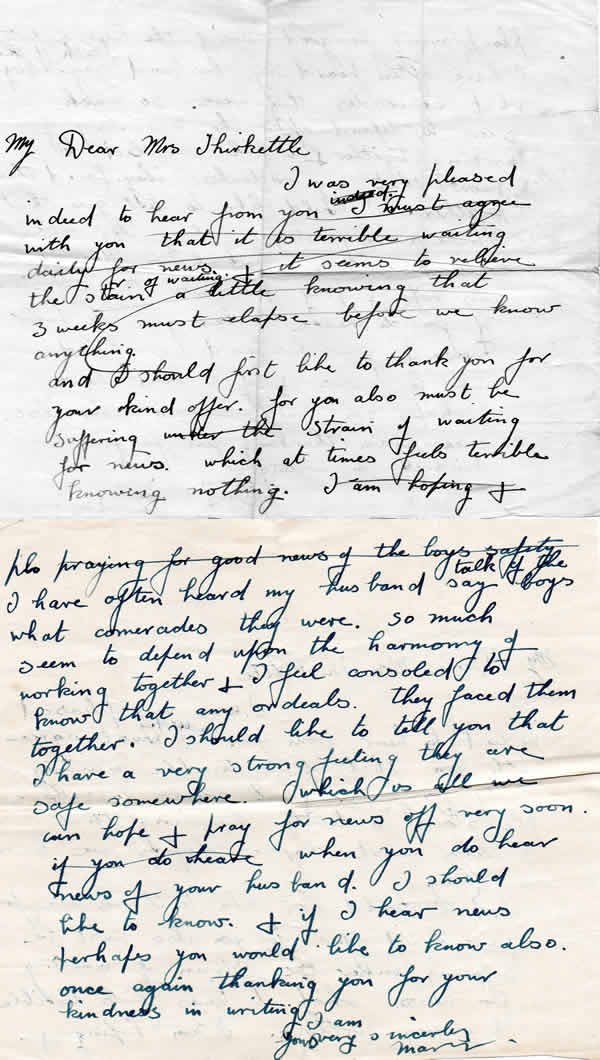 My Dear Mrs Thirkettle
I was very pleased
indeed to hear from you indeed. I must agree
with you that it is terrible waiting
daily for news. & it seems to relieve
the stain of waiting. a little knowing that
3 weeks must elapse before we know
anything.
and I should first like to thank you for
your kind offer. for you also must be
suffering under the strain of waiting
for news. which at times feels terrible
knowing nothing. I am hoping &
praying for good news of the boys safety
I have often heard my husband say talk of the boys
what comerades they were. so much
seem to depend upon the harmony of
working together & I feel consoled to
know that any ordeals. they faced them
together. I should like to tell you that
I have a very strong feeling they are
safe somewhere. which is all we
can hope & pray for news off very soon.
if you do heare when you do hear
news of your husband. I should
like to know. & if I hear news
perhaps you would like to know also.
once again thanking you for your
kindness in writing
I am
yours very sincerley